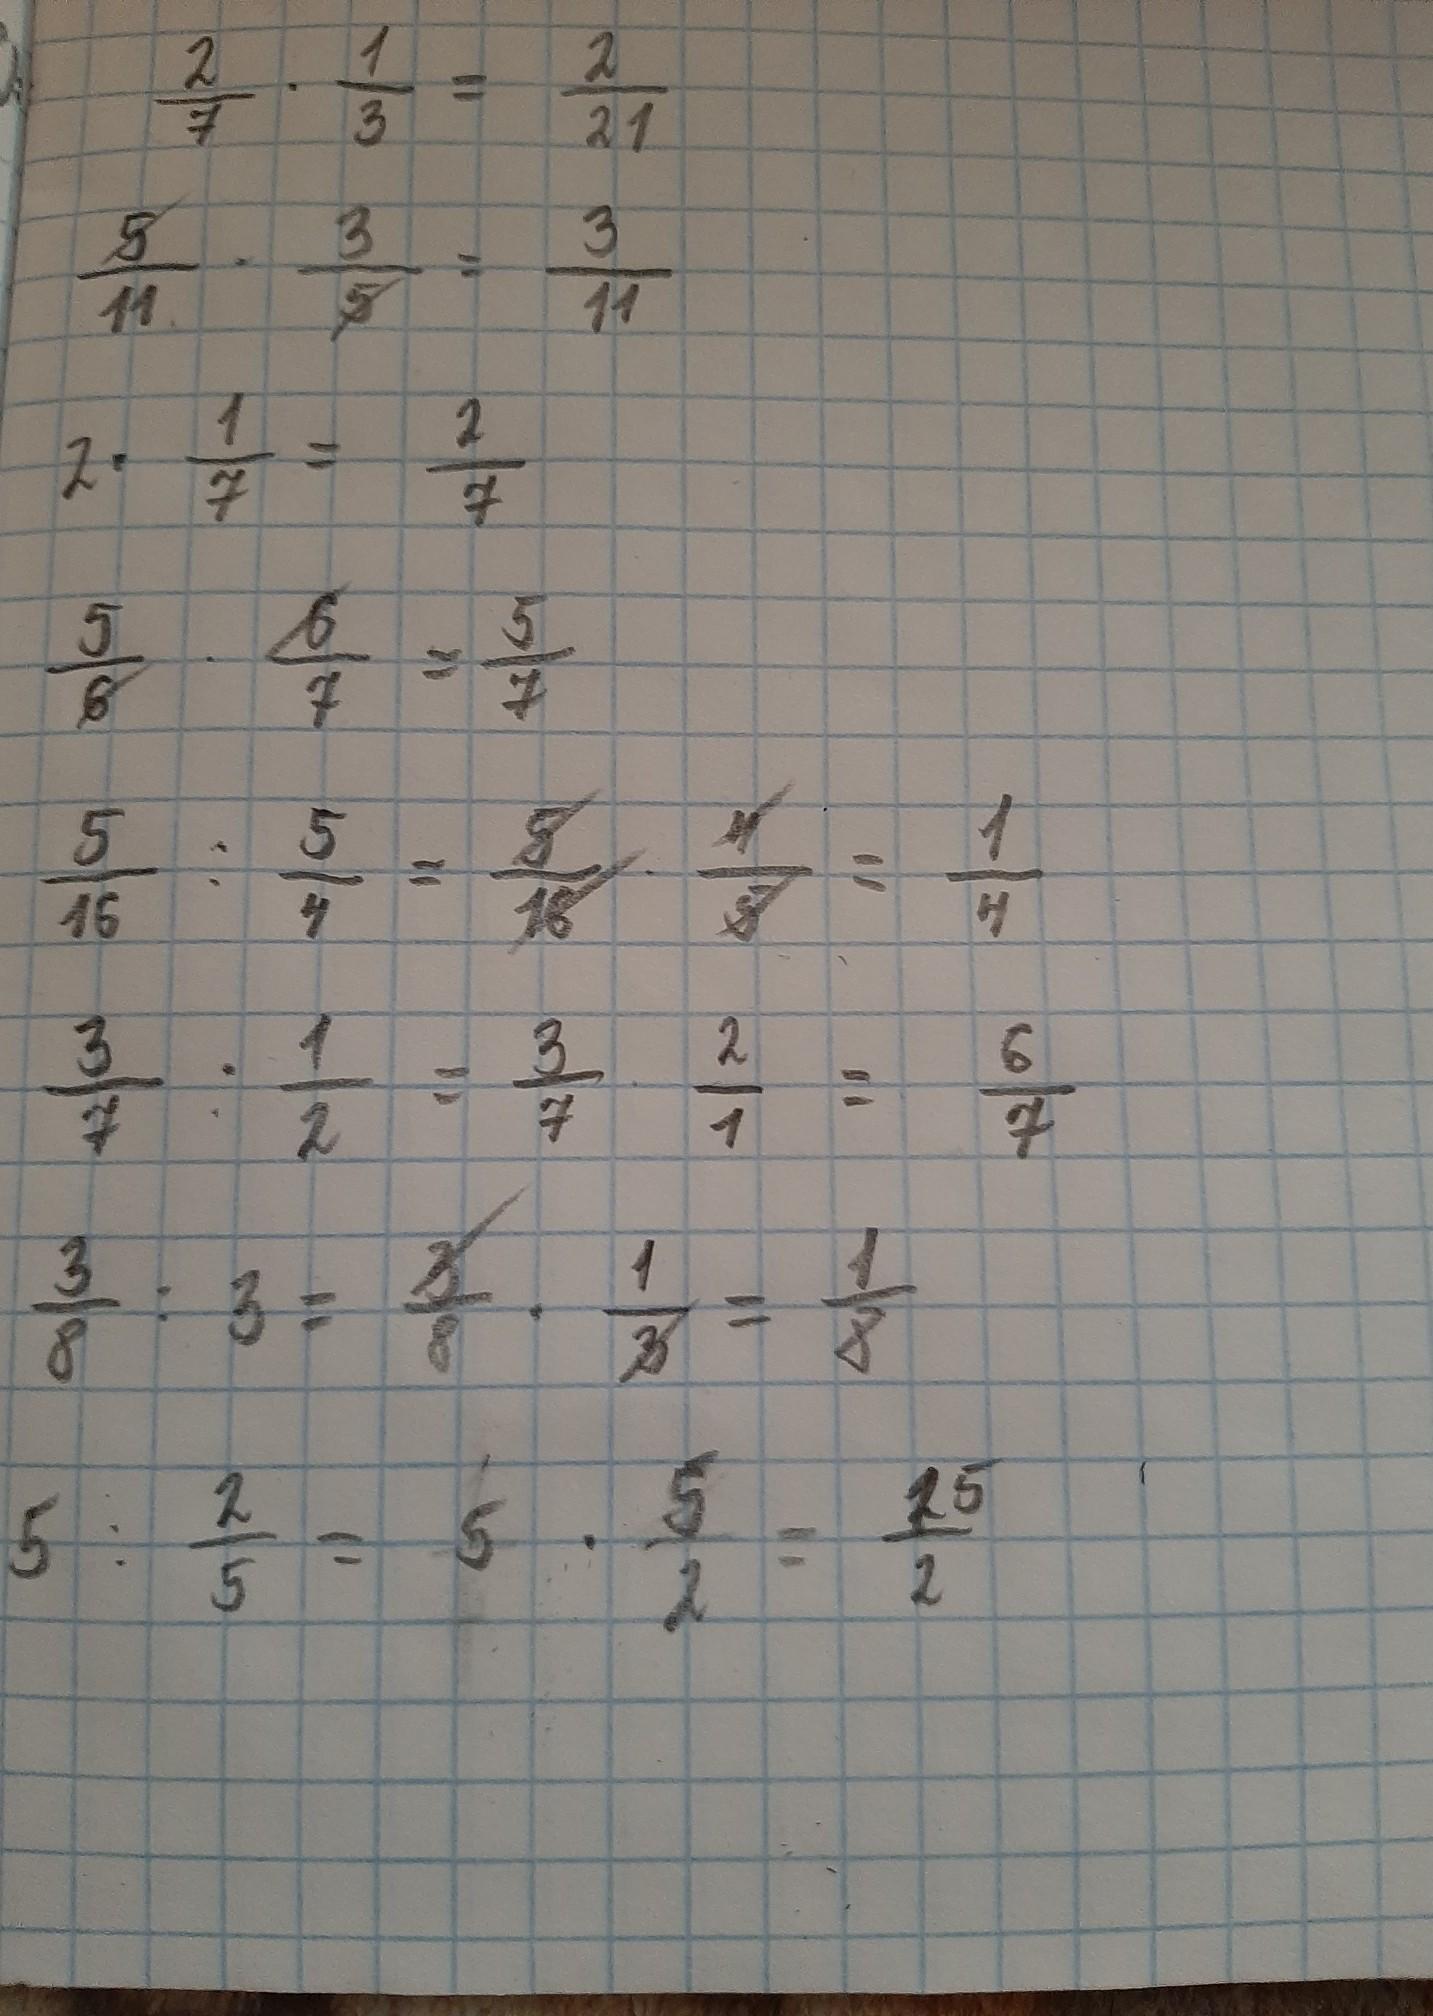 2/7 · 1/3 = 2/21
5/11 · 3/5 = 3/11
2 · 1/7 = 2/7
5/6 · 6/7 = 5/7
5/16 : 5/4 = 5/16 · 4/5 = 1/4
3/7 : 1/2 = 3/7 · 2/1 = 6/7
3/8 : 3 = 3/8 · 1/3 = 1/8
5 : 2/5 = 5 · 5/2 = 25/2